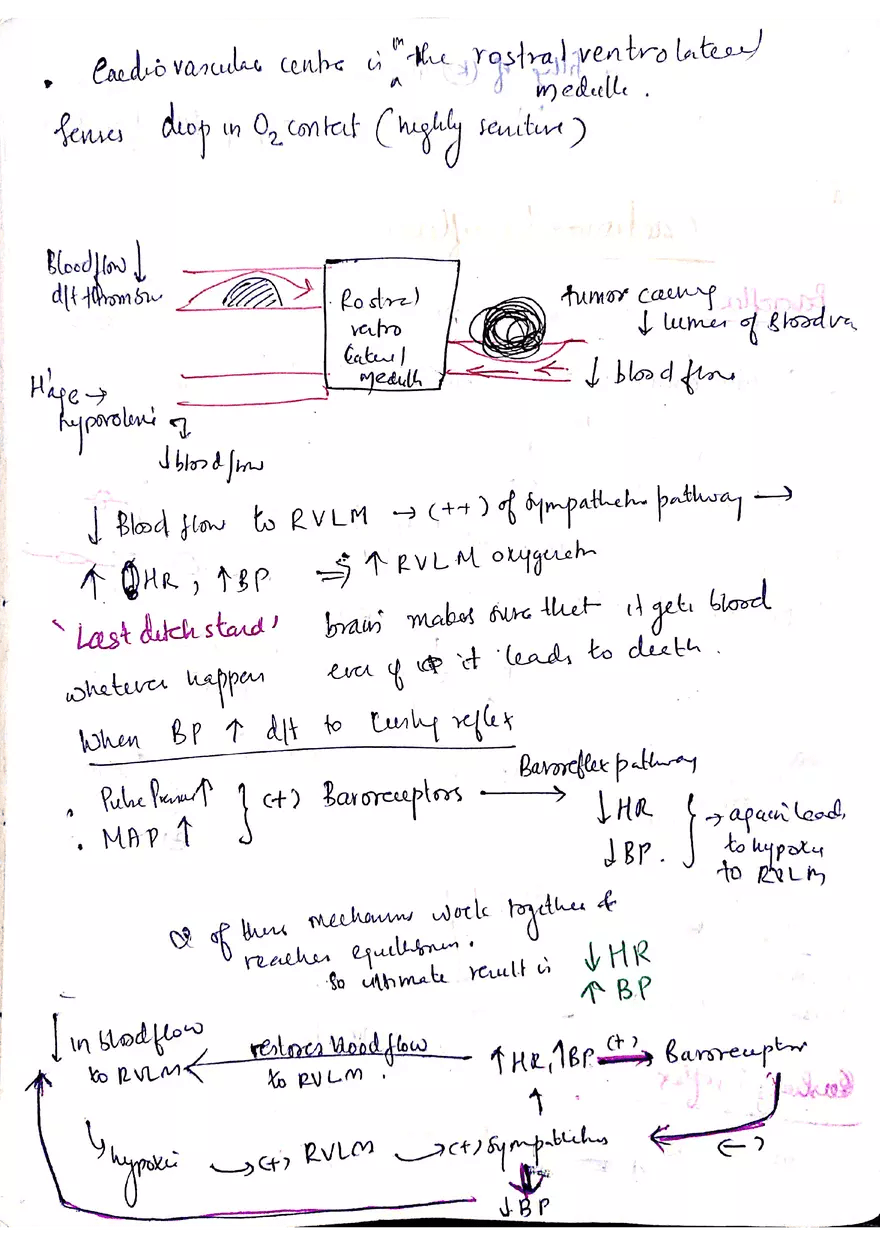 . Cardiovascular centre is in the rostral ventrolateral
medulla.
Senses drop in O2 content (highly sensitive)
Bloodflow ↓
d/t thrombus
Rostral
ventro
lateral
medulla
tumor causing
↓ lumen of Blood
↓ blood flow
H'age →
hypovolemi
↓ blood flow
↓ Blood flow to RVLM → (++) of sympathetic pathway →
↑ HR, ↑BP ⇒ ↑ RVLM oxygenatn
'Last ditch stand' brain makes sure that it gets blood
whatever happen even if it leads to death.
When BP ↑ d/t to Cushing reflex
. Pulse Pressure↑ } (+) Baroreceptors → Baroreflex pathway
. MAP ↑
↓HR
↓BP. } → again leads
to hypoxia
to RVLM
of these mechanisms work together &
reaches equilibrium.
So ultimate result is ↓HR
↑BP
↓ in bloodflow
to RVLM
restores blood flow
to RVLM.
↑HR, ↑BP (+) → Baroreceptor
↑
hypoxia → (+) RVLM → (+) Sympathetic
(-)
↓BP